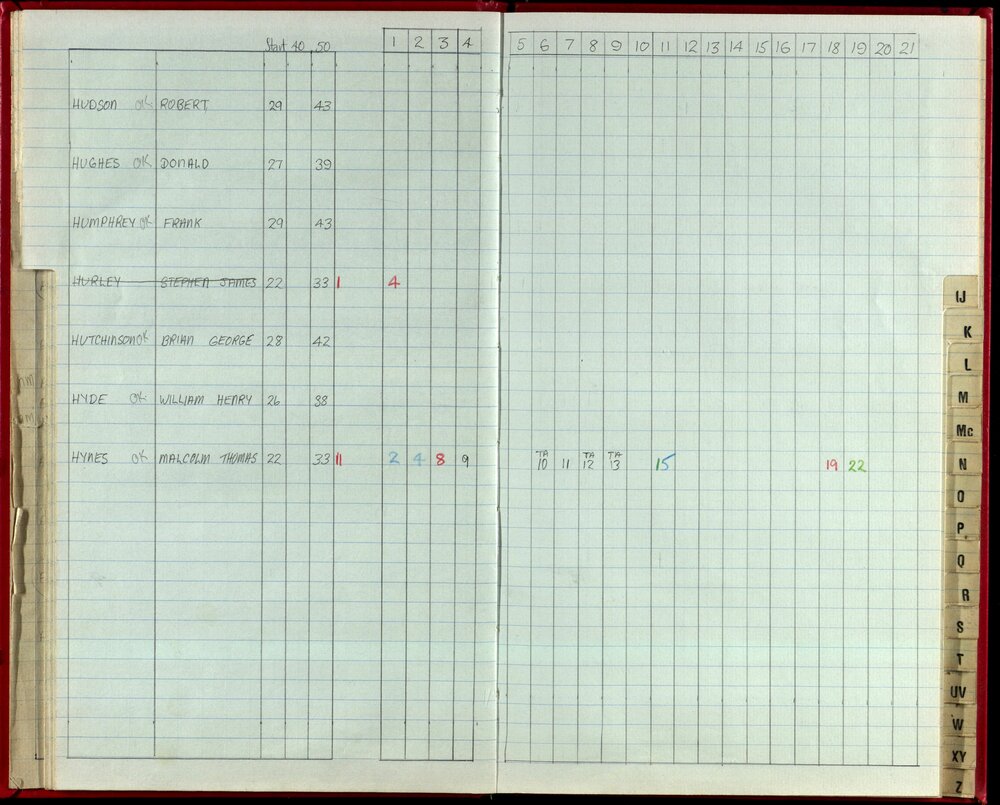 Start 40 50 1 2 3 4 5 6 7 8 9 10 11 12 13 14 15 16 17 18 19 20 21
HUDSON OK ROBERT 29 43
HUGHES OK DONALD 27 39
HUMPHREY OK FRANK 29 43
HURLEY STEPHEN JAMES 22 33 1 4
HUTCHINSON OK BRIAN GEORGE 28 42
HYDE OK WILLIAM HENRY 26 38
HYNES OK MALCOLM THOMAS 22 33 11 2 4 8 9 TA 10 11 TA 12 TA 13 15 19 22
IJ
K
L
M
Mc
N
O
P
Q
R
S
T
UV
W
XY
Z